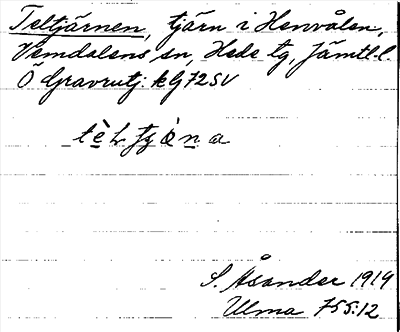 Teltjärnen, tjärn i Henvålen,
Vemdalens sn, Hede tg, Jämtl. l.
Ö Gravrutj: kG72SV
S. Åsander 1919
Ulma 755:12